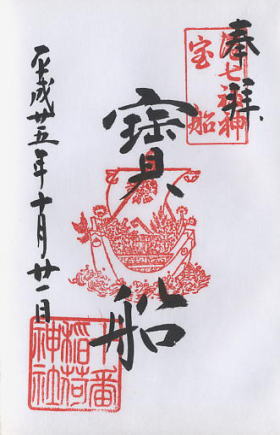 奉拝
港七福神
宝船
寳船
平成廿五年十月廿一日
十番
稲荷
神社